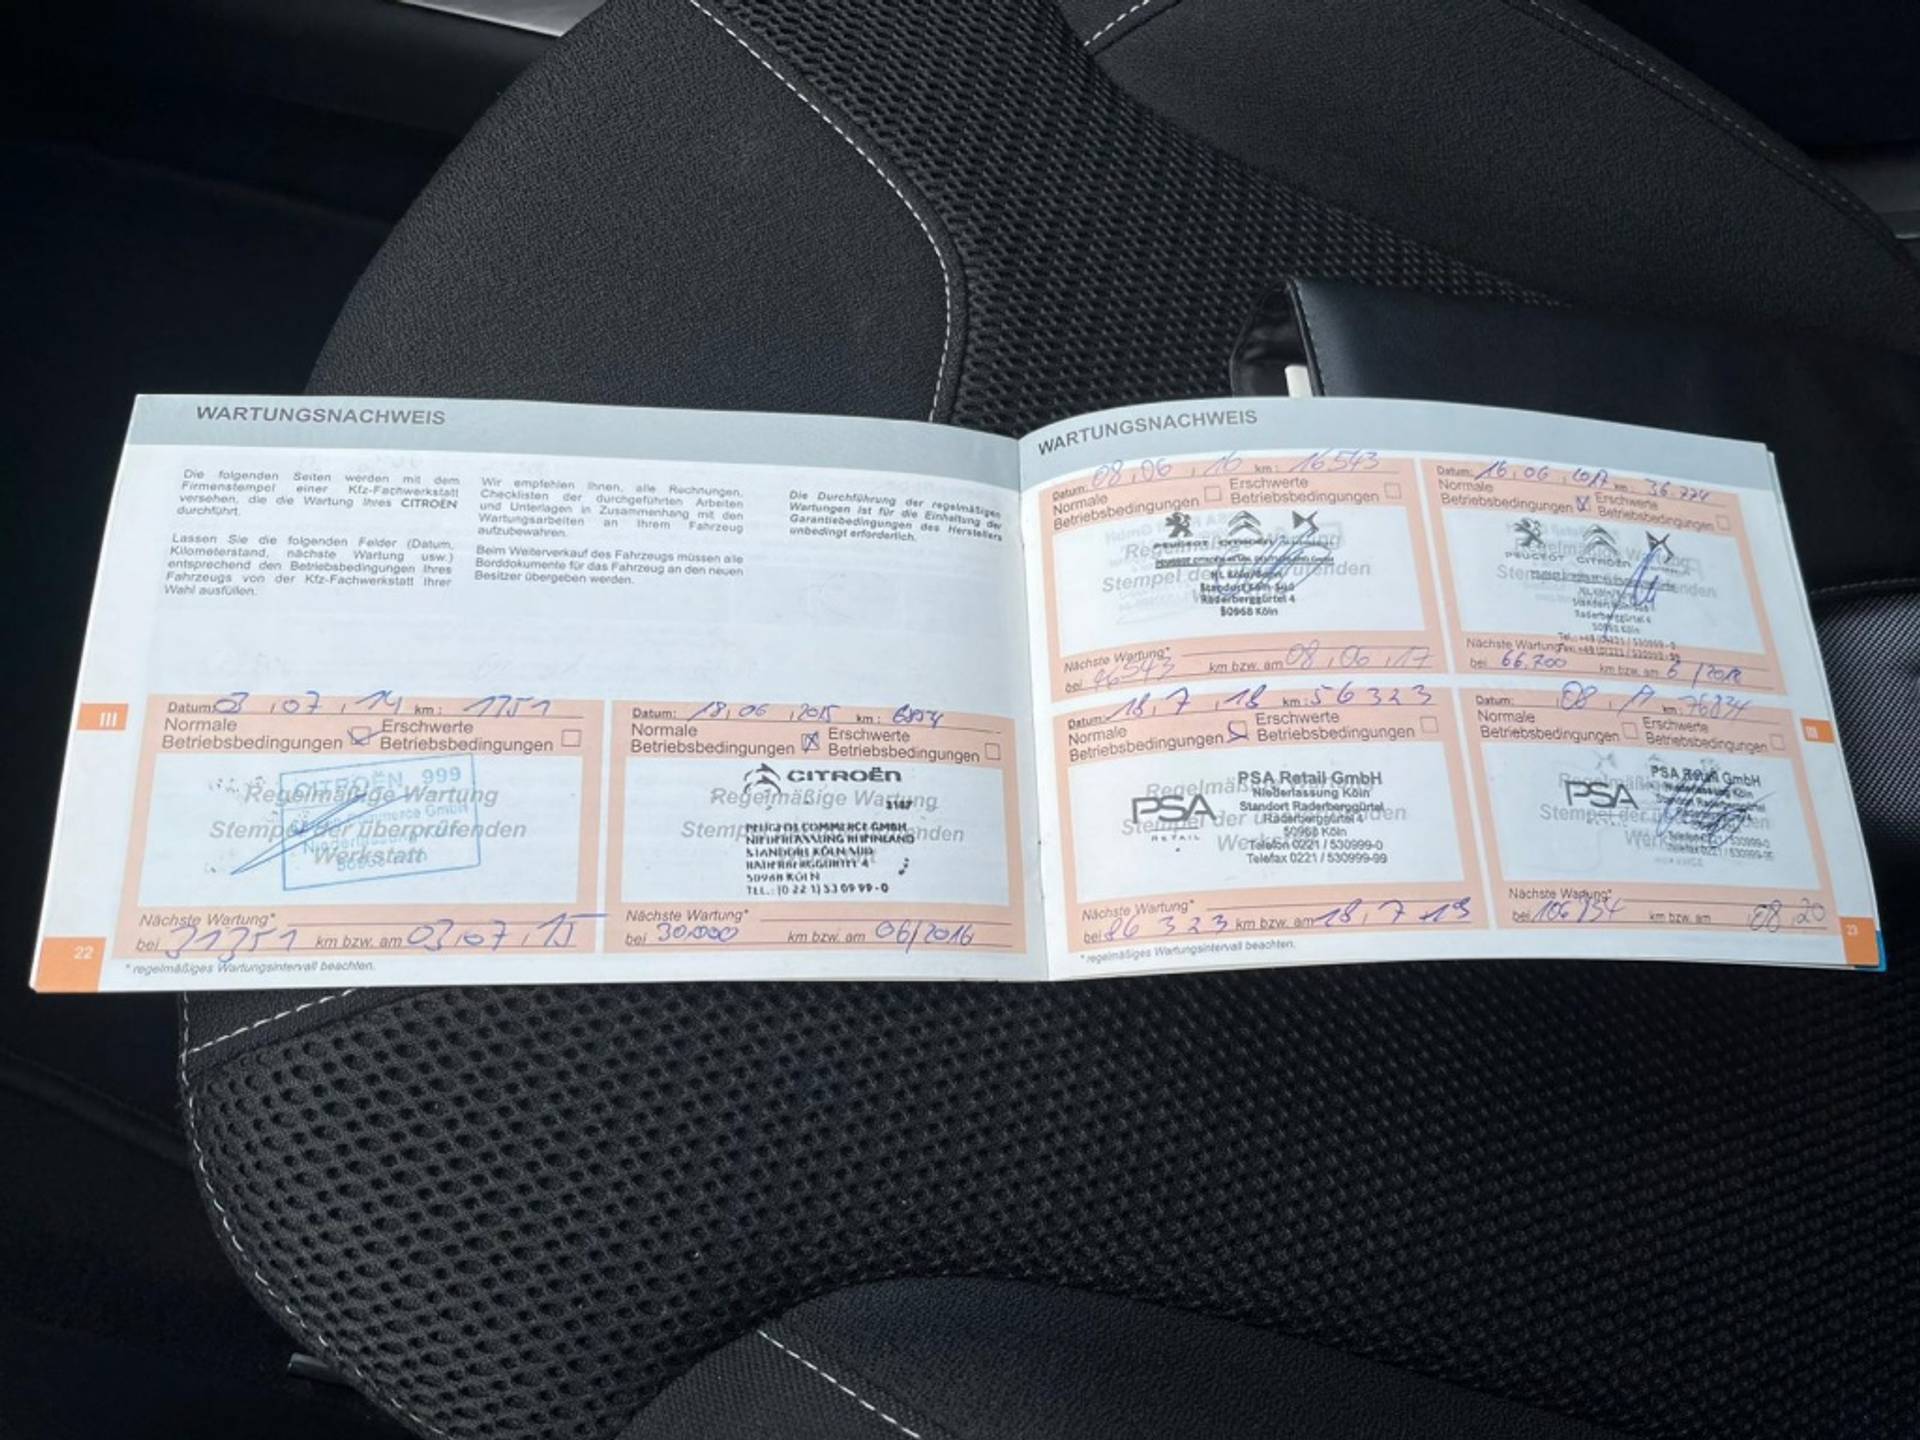 WARTUNGSNACHWEIS
Die folgenden Seiten werden mit dem
Firmenstempel einer Kfz-Fachwerkstatt
versehen, die die Wartung Ihres CITROËN
durchführt.
Lassen Sie die folgenden Felder (Datum,
Kilometerstand, nächste Wartung usw.)
entsprechend den Betriebsbedingungen Ihres
Fahrzeugs von der Kfz-Fachwerkstatt Ihrer
Wahl ausfüllen.
Wir empfehlen Ihnen, alle Rechnungen,
Checklisten der durchgeführten Arbeiten
und Unterlagen in Zusammenhang mit den
Wartungsarbeiten an Ihrem Fahrzeug
aufzubewahren.
Beim Weiterverkauf des Fahrzeugs müssen alle
Borddokumente für das Fahrzeug an den neuen
Besitzer übergeben werden.
Die Durchführung der regelmäßigen
Wartungen ist für die Einhaltung der
Garantiebedingungen des Herstellers
unbedingt erforderlich.
III
Datum: 03.07.14 km: 1351
Normale Erschwerte
Betriebsbedingungen Betriebsbedingungen
CITROËN 999
Regelmäßige Wartung
Commerce GmbH
Stempel der überprüfenden
Niederlassung
Werkstatt
Nächste Wartung*
bei 31351 km bzw. am 03.07.15
Datum: 18.06.2015 km:
Normale Erschwerte
Betriebsbedingungen Betriebsbedingungen
CITROËN
Regelmäßige Wartung
PEUGEOT COMMERCE GMBH
NIEDERLASSUNG RHEINLAND
STANDORT KÖLN SÜD
RADERBERGGÜRTEL 4
50968 KÖLN
TEL.: (0 22 1) 53 09 99 - 0
Nächste Wartung*
bei 30.000 km bzw. am 06/2016
22
* regelmäßiges Wartungsintervall beachten.
WARTUNGSNACHWEIS
Datum: 08.06.16 km: 16543
Normale Erschwerte
Betriebsbedingungen Betriebsbedingungen
PEUGEOT CITROËN
Regelmäßige Wartung
Stempel der überprüfenden
NL Köln/Bonn
Standort Köln-Süd
Raderberggürtel 4
50968 Köln
Nächste Wartung*
bei 46543 km bzw. am 08.06.17
Datum: 16.06.2017 km: 36.774
Normale Erschwerte
Betriebsbedingungen Betriebsbedingungen
PEUGEOT CITROËN
Raderberggürtel 4
50968 Köln
Nächste Wartung*
bei 66.700 km bzw. am 6/2018
Datum: 18.7.18 km: 56323
Normale Erschwerte
Betriebsbedingungen Betriebsbedingungen
PSA RETAIL
PSA Retail GmbH
Niederlassung Köln
Standort Raderberggürtel
Raderberggürtel 4
50968 Köln
Telefon 0221 / 530999-0
Telefax 0221 / 530999-99
Nächste Wartung*
bei 86323 km bzw. am 18.7.19
Datum: 08. km: 76834
Normale Erschwerte
Betriebsbedingungen Betriebsbedingungen
PSA
PSA Retail GmbH
Niederlassung Köln
Standort Raderberggürtel
Nächste Wartung*
bei 106834 km bzw. am 08.20
* regelmäßiges Wartungsintervall beachten.
III
23